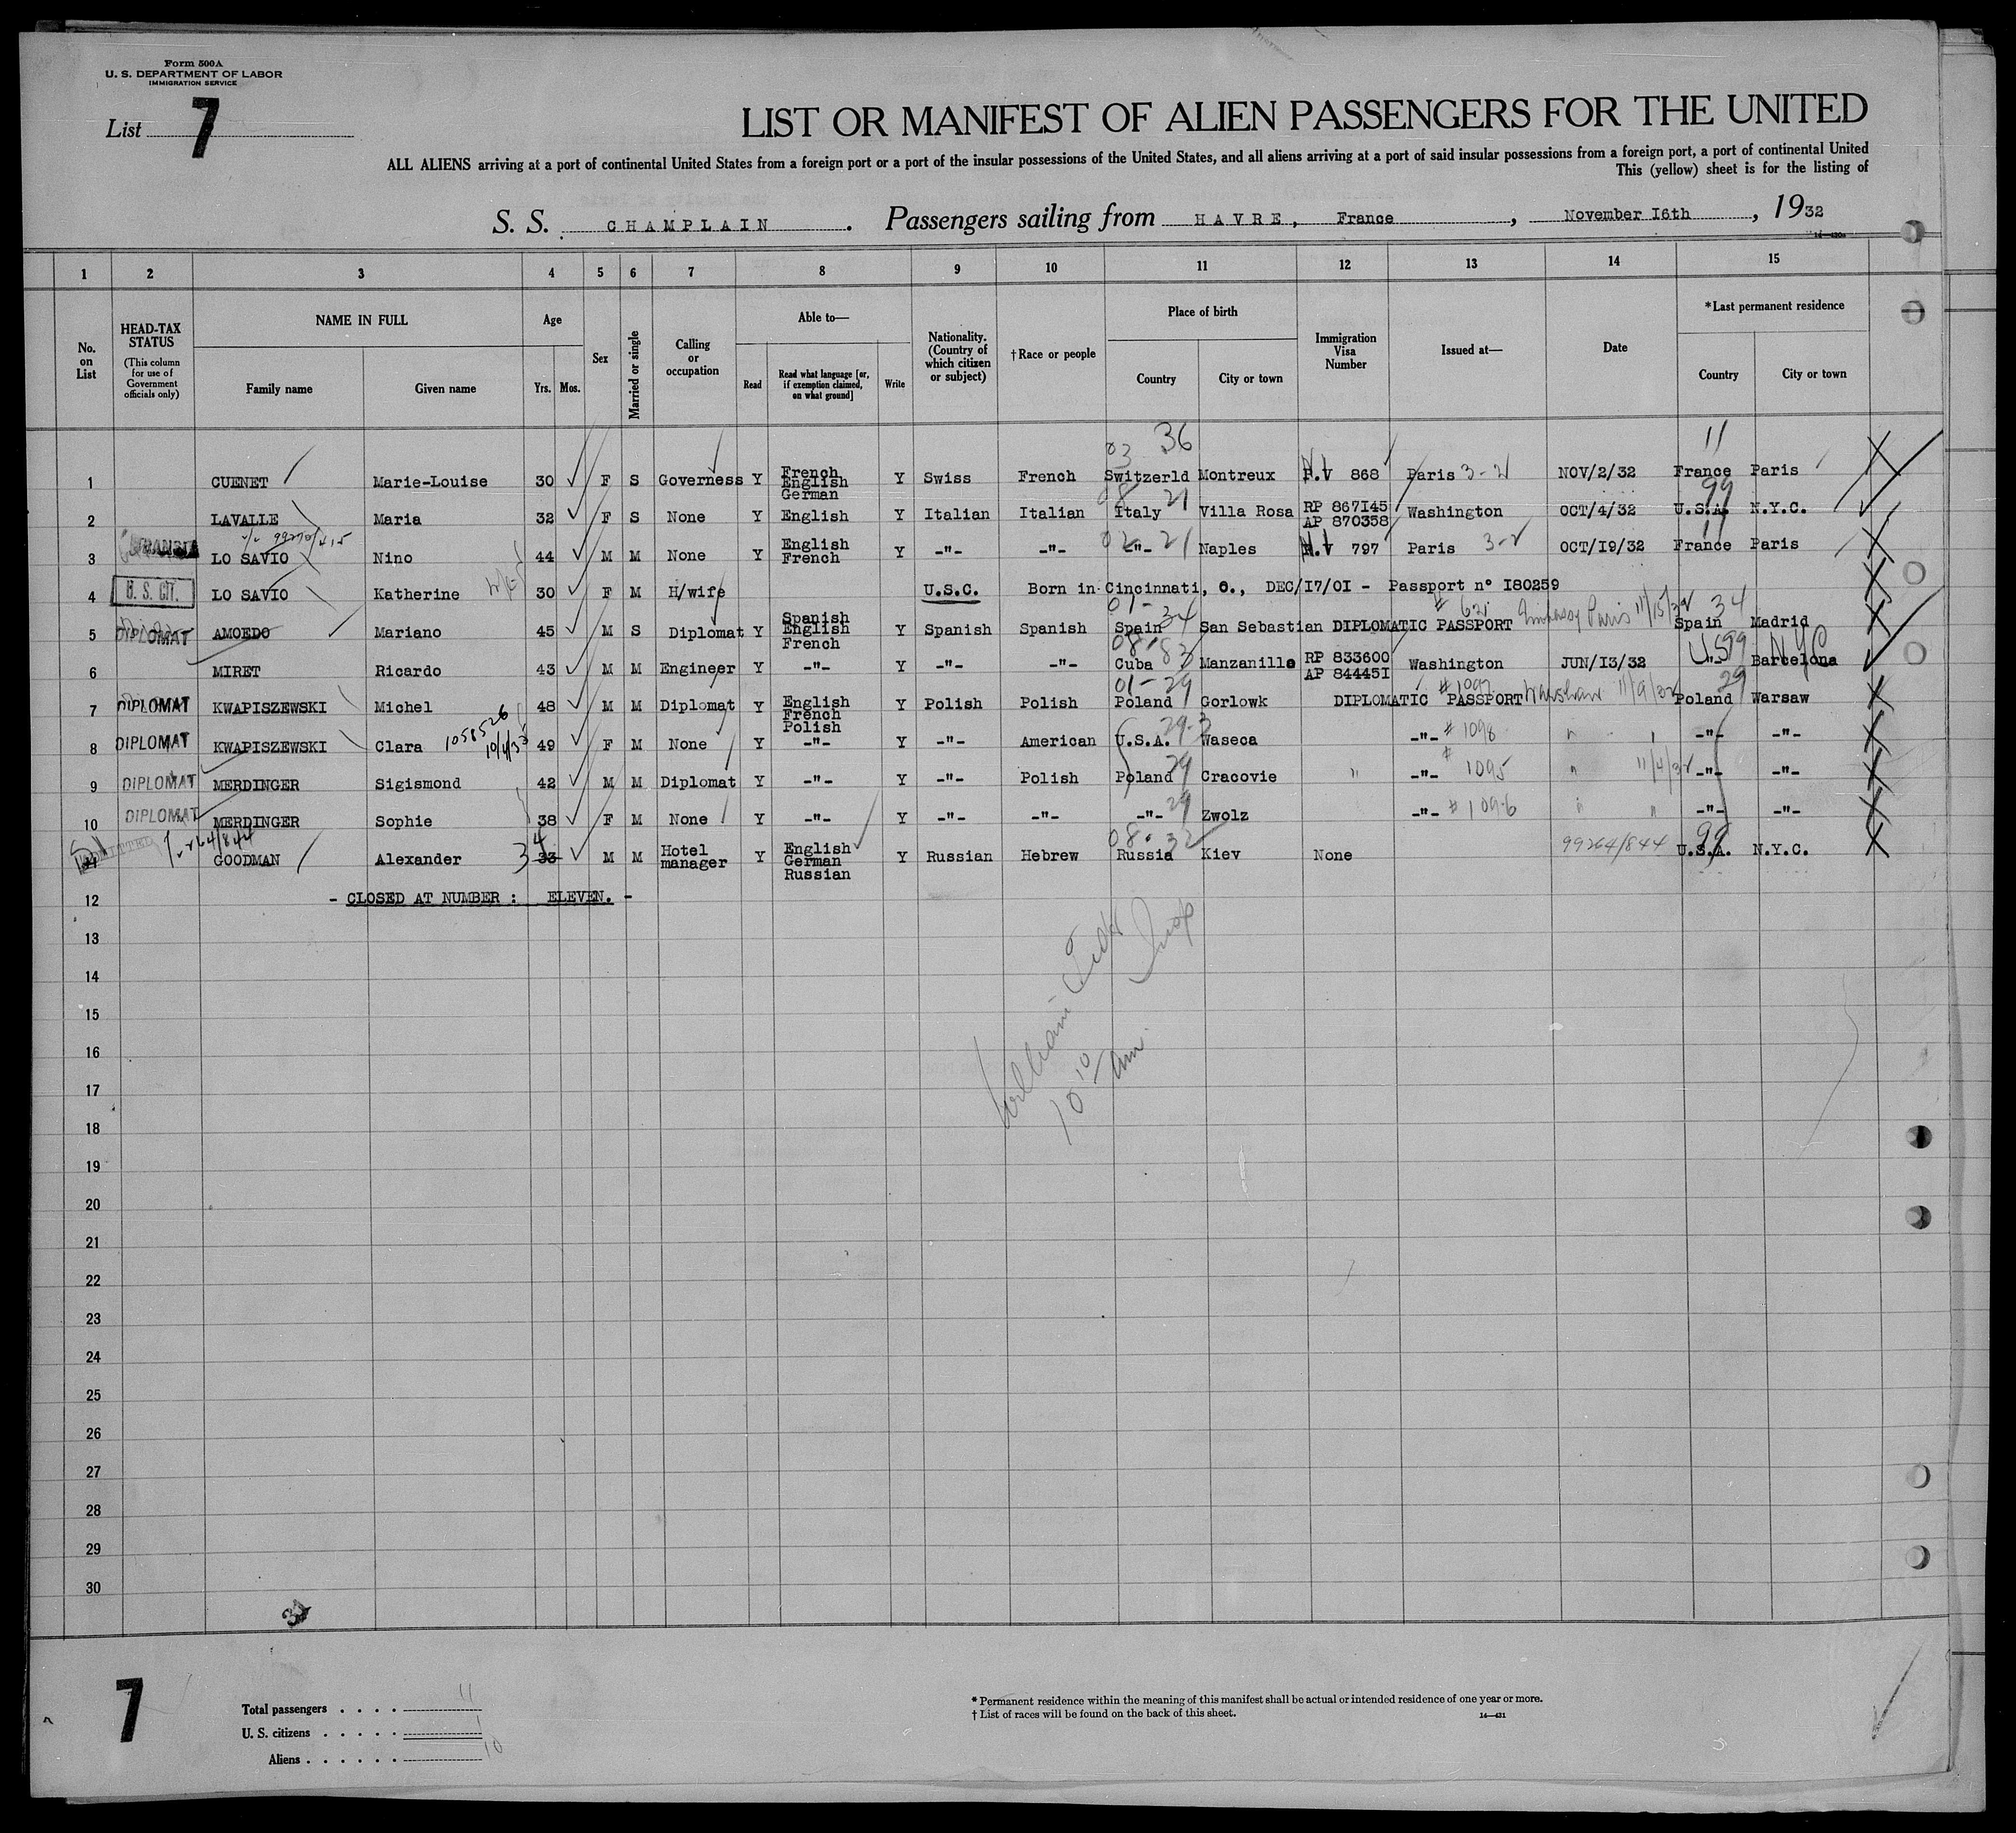 Form 500A
U. S. DEPARTMENT OF LABOR
IMMIGRATION SERVICE
List 7
LIST OR MANIFEST OF ALIEN PASSENGERS FOR THE UNITED
ALL ALIENS arriving at a port of continental United States from a foreign port or a port of the insular possessions of the United States, and all aliens arriving at a port of said insular possessions from a foreign port, a port of continental United
This (yellow) sheet is for the listing of
S. S. CHAMPLAIN. Passengers sailing from HAVRE, France, November 16th, 1932
1 2 3 4 5 6 7 8 9 10 11 12 13 14 15
No. on List
HEAD-TAX STATUS
(This column for use of Government officials only)
NAME IN FULL
Family name Given name
Age
Yrs. Mos.
Sex
Married or single
Calling or occupation
Able to—
Read
Read what language [or, if exemption claimed, on what ground]
Write
Nationality. (Country of which citizen or subject)
†Race or people
Place of birth
Country City or town
Immigration Visa Number
Issued at—
Date
*Last permanent residence
Country City or town
03 36 11
1 CUENET Marie-Louise 30 F S Governess Y French English German Y Swiss French Switzerld Montreux 868 Paris 3-2 NOV/2/32 France Paris
08 21 99
2 LAVALLE Maria 32 F S None Y English Y Italian Italian Italy Villa Rosa RP 867I45 AP 870358 Washington OCT/4/32 U.S.A. N.Y.C.
02 21 11
3 TRANSIT LO SAVIO Nino 44 M M None Y English French Y -"- -"- -"- Naples 797 Paris 3-2 OCT/I9/32 France Paris
4 U. S. CIT. LO SAVIO Katherine 30 F M H/wife U.S.C. Born in Cincinnati, O., DEC/I7/0I - Passport n° I80259
01- 34 # 621 Embassy Paris 11/15/32 34
5 DIPLOMAT AMOEDO Mariano 45 M S Diplomat Y Spanish English French Y Spanish Spanish Spain San Sebastian DIPLOMATIC PASSPORT Spain Madrid
08- 83 US 99 NYC
6 MIRET Ricardo 43 M M Engineer Y -"- Y -"- -"- Cuba Manzanillo RP 833600 AP 84445I Washington JUN/I3/32 -"- Barcelona
01- 29 # 1097 Warshaw 11/9/32 29
7 DIPLOMAT KWAPISZEWSKI Michel 48 M M Diplomat Y English French Polish Y Polish Polish Poland Gorlowk DIPLOMATIC PASSPORT Poland Warsaw
8 DIPLOMAT KWAPISZEWSKI Clara 1058526 49 F M None Y -"- Y -"- American U.S.A. Waseca -"- # 1098 -"- -"-
9 DIPLOMAT MERDINGER Sigismond 42 M M Diplomat Y -"- Y -"- Polish Poland 29 Cracovie -"- # 1095 11/4/32 -"- -"-
10 DIPLOMAT MERDINGER Sophie 38 F M None Y -"- Y -"- -"- -"- 29 Zwolz -"- # 1096 -"- -"-
08- 32 99
ADMITTED GOODMAN Alexander 34 33 M M Hotel manager Y English German Russian Y Russian Hebrew Russia Kiev None 99264/844 U.S.A. N.Y.C.
12 - CLOSED AT NUMBER : ELEVEN. -
13
14
15
16
17
18
19
20
21
22
23
24
25
26
27
28
29
30
William
10 10 am
7
Total passengers . . . . 11
U. S. citizens . . . . . 1
Aliens . . . . . . 10
* Permanent residence within the meaning of this manifest shall be actual or intended residence of one year or more.
† List of races will be found on the back of this sheet.
14—431